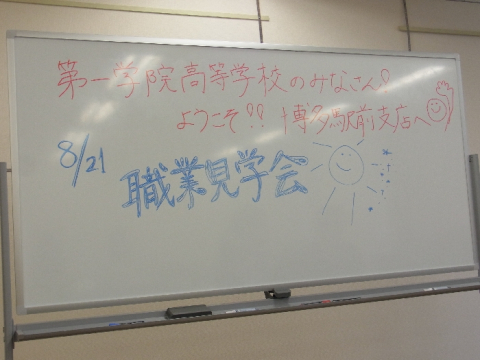 第一学院高等学校のみなさん!
ようこそ!! 博多駅前支店へ
8/21
職業見学会